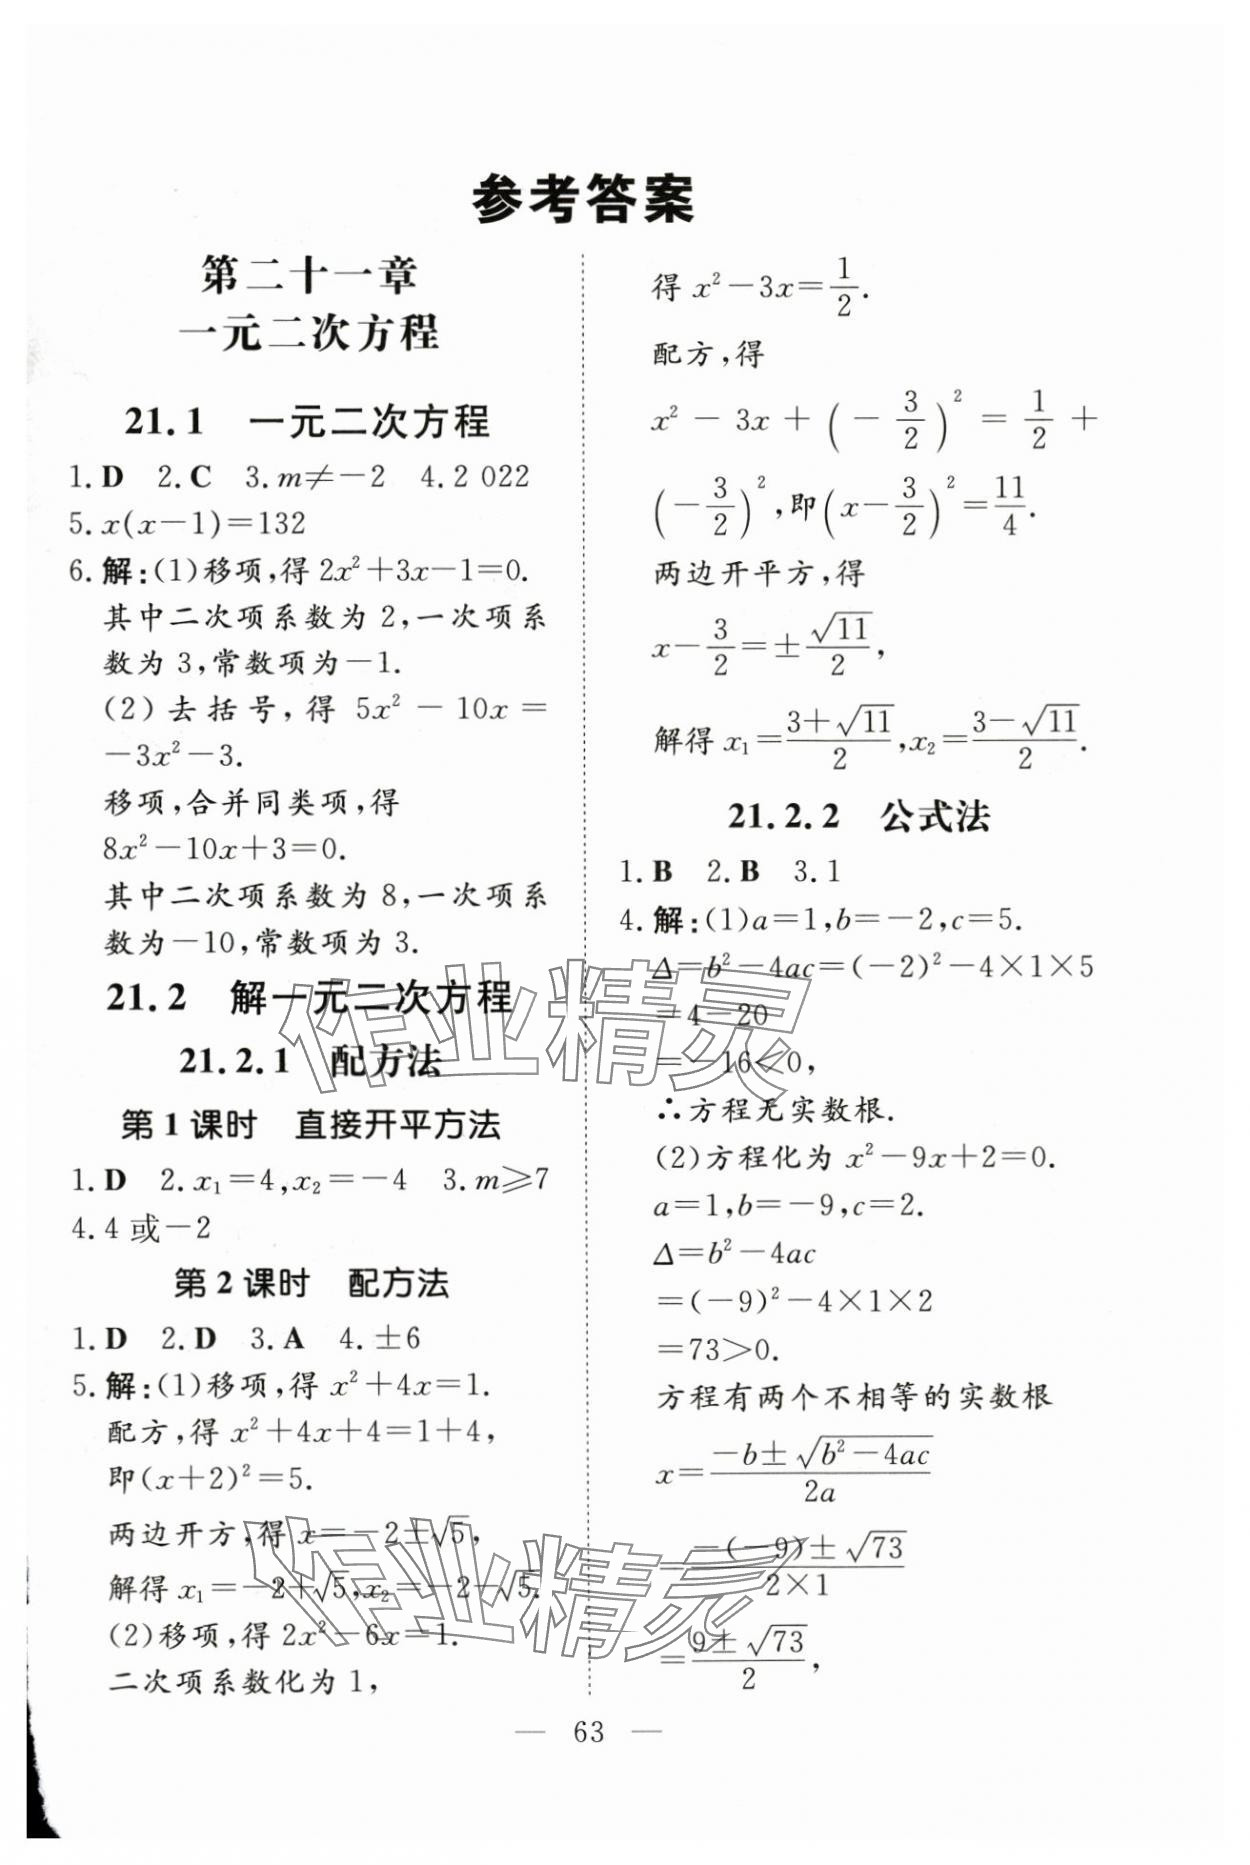 参考答案
第二十一章
一元二次方程
21.1 一元二次方程
1.D 2.C 3.m≠-2 4.2 022
5.x(x-1)=132
6.解:(1)移项,得 2x²+3x-1=0.
其中二次项系数为 2,一次项系
数为 3,常数项为-1.
(2)去括号,得 5x²-10x=
-3x²-3.
移项,合并同类项,得
8x²-10x+3=0.
其中二次项系数为 8,一次项系
数为-10,常数项为 3.
21.2 解一元二次方程
21.2.1 配方法
第 1 课时 直接开平方法
1.D 2.x₁=4,x₂=-4 3.m≥7
4.4 或-2
第 2 课时 配方法
1.D 2.D 3.A 4.±6
5.解:(1)移项,得 x²+4x=1.
配方,得 x²+4x+4=1+4,
即(x+2)²=5.
两边开方,得 x=-2±√5,
解得 x₁=-2+√5,x₂=-2-√5.
(2)移项,得 2x²-6x=1.
二次项系数化为 1,
得 x²-3x=1/2.
配方,得
x²-3x+(-3/2)²=1/2+
(-3/2)²,即(x-3/2)²=11/4.
两边开平方,得
x-3/2=±√11/2,
解得 x₁=(3+√11)/2,x₂=(3-√11)/2.
21.2.2 公式法
1.B 2.B 3.1
4.解:(1)a=1,b=-2,c=5.
Δ=b²-4ac=(-2)²-4×1×5
=4-20
=-16<0,
∴方程无实数根.
(2)方程化为 x²-9x+2=0.
a=1,b=-9,c=2.
Δ=b²-4ac
=(-9)²-4×1×2
=73>0.
方程有两个不相等的实数根
x=(-b±√(b²-4ac))/2a
=(-(-9)±√73)/(2×1)
=(9±√73)/2,
— 63 —
作业精灵
作业精灵